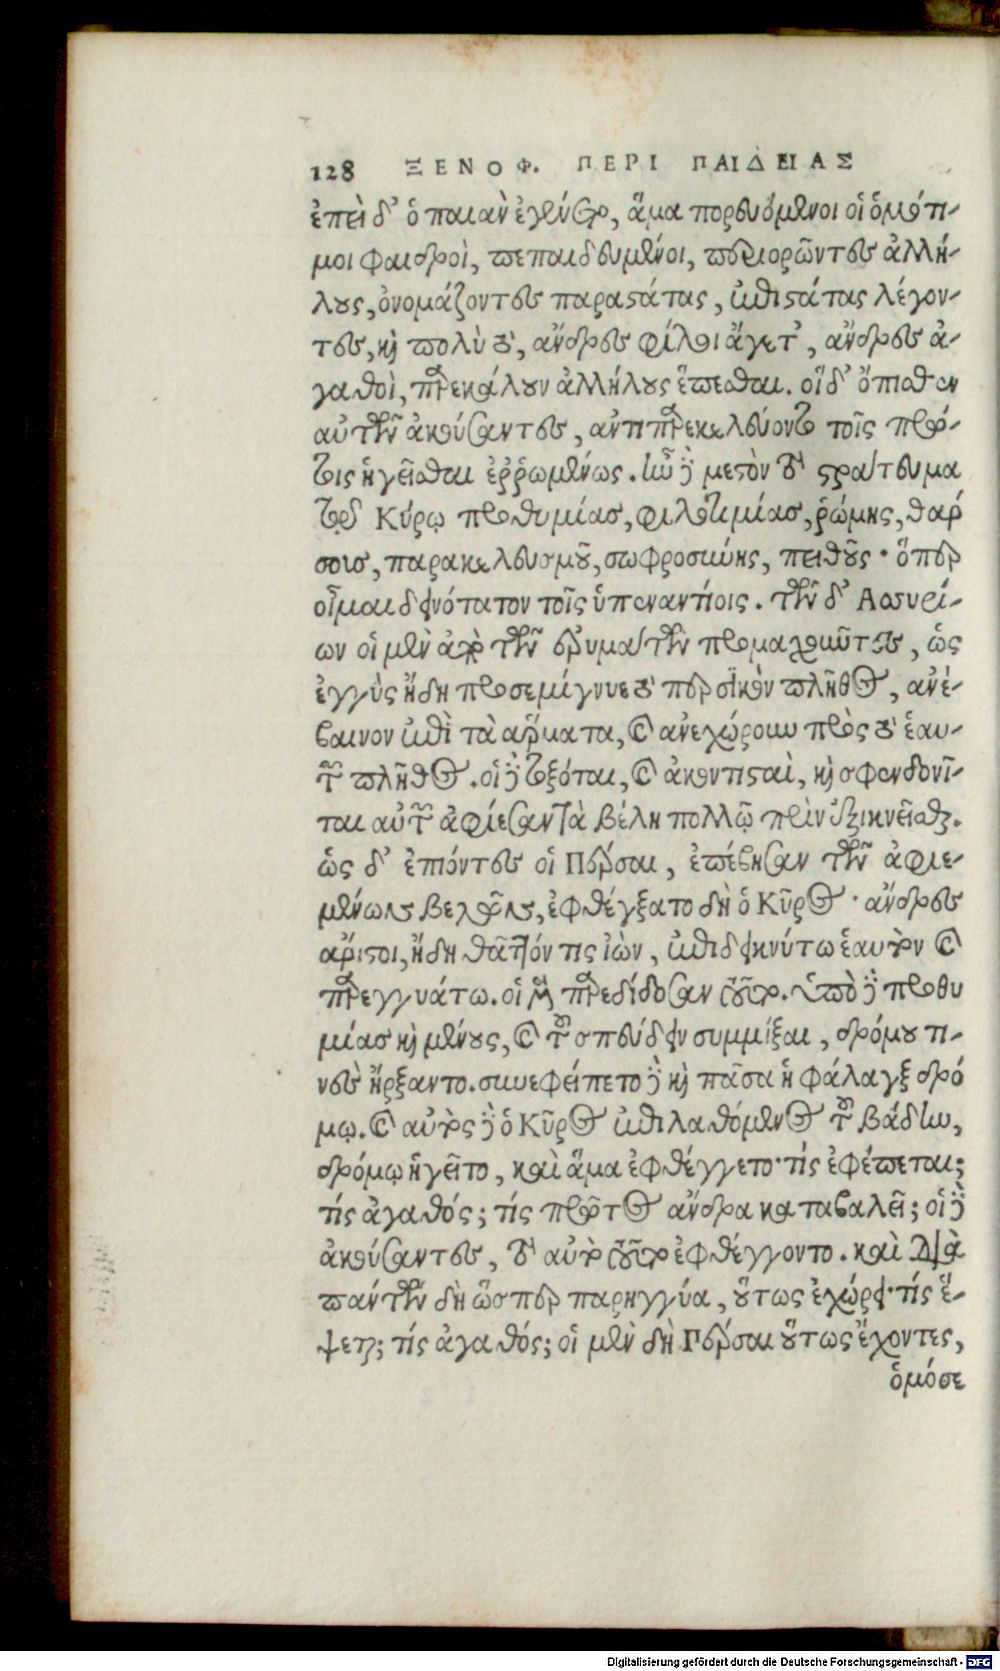 128 ΞΕΝΟΦ. ΠΕΡΙ ΠΑΙΔΕΙΑΣ
ἐπεὶ δ' ὁ παιὰν ἐγένετο, ἅμα πορευόμενοι οἱ ὁμότι-
μοι φαιδροὶ, πεπαιδευμένοι, περιορῶντες ἀλλή-
λους, ὀνομάζοντες παραστάτας, ἐπιστάτας λέγον-
τες, καὶ πολὺ τὸ, ἄνδρες φίλοι ἄγετ', ἄνδρες ἀ-
γαθοὶ, παρεκάλουν ἀλλήλους ἕπεσθαι. οἱ δ' ὄπισθεν
αὐτῶν ἀκούσαντες, ἀντιπαρεκελεύοντο τοῖς πρώ-
τοις ἡγεῖσθαι ἐῤῥωμένως. ἦν δὲ μεστὸν τὸ στράτευμα
τῷ Κύρῳ προθυμίας, φιλοτιμίας, ῥώμης, θάρ
σους, παρακελευσμοῦ, σωφροσύνης, πειθοῦς· ὅπερ
οἶμαι δεινότατον τοῖς ὑπεναντίοις. τῶν δ' Ασυρί-
ων οἱ μὲν ἀπὸ τῶν ἁρμάτων προμαχοῦντες, ὡς
ἐγγὺς ἤδη προσεμίγνυε τὸ περσικὸν πλῆθος, ἀνέ-
βαινον ἐπὶ τὰ ἅρματα, καὶ ἀνεχώρουν πρὸς τὸ ἑαυ-
τῶν πλῆθος. οἱ δὲ τοξόται, καὶ ἀκοντισταὶ, καὶ σφενδονῆ-
ται αὐτῶν ἀφίεσαν τὰ βέλη πολλῷ πρὶν ἐξικνεῖσθαι.
ὡς δ' ἐπιόντες οἱ Πέρσαι, ἐπέβησαν τῶν ἀφιε-
μένων βελῶν, ἐφθέγξατο δὴ ὁ Κῦρος· ἄνδρες
ἄριστοι, ἤδη θᾶττόν τις ἰὼν, ἐπιδεικνύτω ἑαυτὸν καὶ
παρεγγυάτω. οἱ μὲν δὴ παρεδίδοσαν τοῦτο. ὑπὸ δὲ προθυ
μίας καὶ μένους, καὶ τοῦ σπεύδειν συμμίξαι, δρόμου τι-
νὲς ἤρξαντο. συνεφείπετο δὲ καὶ πᾶσα ἡ φάλαγξ δρό
μῳ. καὶ αὐτὸς δὲ ὁ Κῦρος ἐπιλαθόμενος τοῦ βάδην,
δρόμῳ ἡγεῖτο, καὶ ἅμα ἐφθέγγετο· τίς ἐφέπεται;
τίς ἀγαθός; τίς πρῶτος ἄνδρα καταβαλεῖ; οἱ δὲ
ἀκούσαντες, τὸ αὐτὸ τοῦτο ἐφθέγγοντο. καὶ διὰ
πάντων δὴ ὥσπερ παρηγγύα, οὕτως ἐχώρει· τίς ἕ-
ψεται; τίς ἀγαθός; οἱ μὲν δὴ Πέρσαι οὕτως ἔχοντες,
ὁμόσε
Digitalisierung gefördert durch die Deutsche Forschungsgemeinschaft - DFG